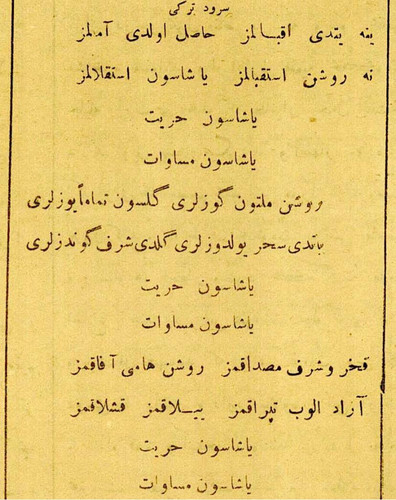 سرود ترکی
ینه یتدی اقبـالمز حاصل اولدی آمـلمز
نه روشن استقبالمز یاشاسون استقلالمز
یاشاسون حریت
یاشاسون مساوات
روشن ملتون گوزلری گلسون تماماً یوزلری
باتدی سحر یولدوزلری گلدی شرف گوندزلری
یاشاسون حریت
یاشاسون مساوات
فخر و شرف مصداقمز روشن هامی آفاقمز
آزاد الوب تپراقمز ییـلاقمز قشلاقمز
یاشاسون حریت
یاشاسون مساوات